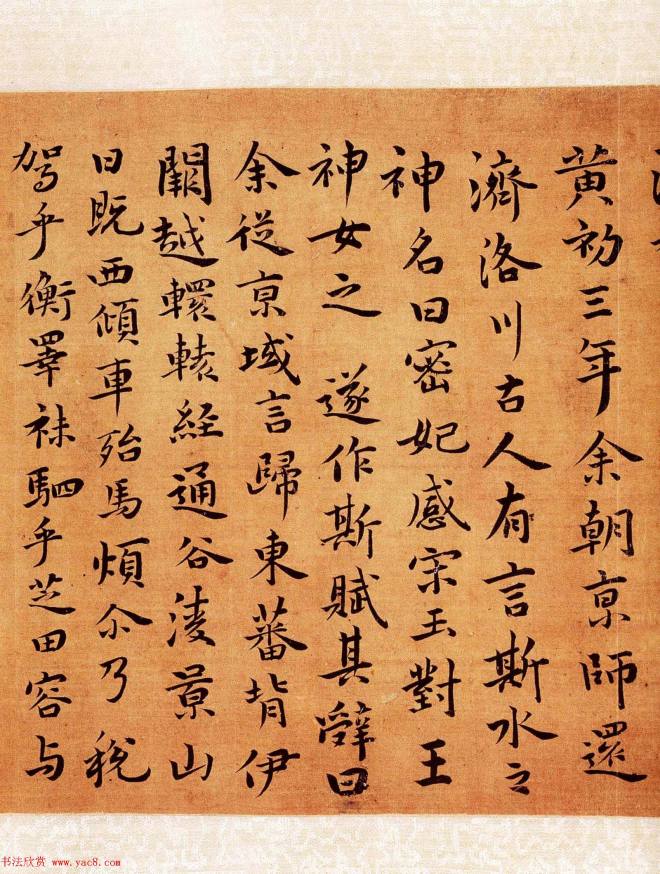 黄初三年余朝京師還
濟洛川古人有言斯水之
神名曰密妃感宋玉對王
神女之 遂作斯賦其辭曰
余從京域言歸東蕃背伊
闕越轘轅經通谷陵景山
日既西傾車殆馬煩尒乃稅
駕乎衡睪秣駟乎芝田容与
书法欣赏 www.yac8.com